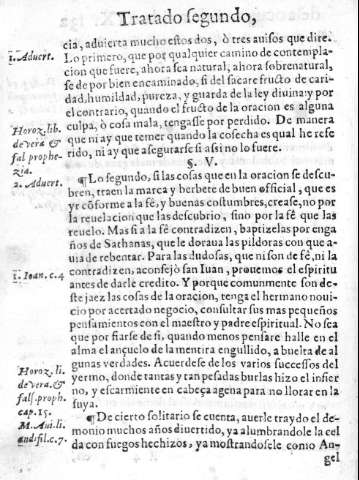 Tratado segundo,
cia, aduierta mucho estos dos, ò tres auisos que dire.
1. Aduert.
Lo primero, que por qualquier camino de contempla-
cion que fuere, ahora sea natural, ahora sobrenatural,
se de por bien encaminado, si del sacare fructo de cari-
dad, humildad, pureza, y guarda de la ley diuina y por
el contrario, quando el fructo de la oracion es alguna
culpa, ò cosa mala, tengasse por perdido. De manera
que ni ay que temer quando la cosecha es qual he refe
rido, ni ay que asegurarse si assi no lo fuere.
Horoz. lib.
de vera &
fal prophe-
zia.
§. V.
2. Aduert.
¶Lo segundo, si las cosas que en la oracion se descu-
bren, traen la marca y berbete de buen official, que es
yr cõforme a la fé, y buenas costumbres, crease, no por
la reuelacion que las descubrio, sino por la fé que las
reuelo. Mas si a la fé contradizen, baptizelas por enga
ños de Sathanas, que le doraua las pildoras con que a-
uia de rebentar. Para las dudosas, que ni son de fé, ni la
contradizen, aconsejò san Iuan, prouemos el espiritu
1. Ioan. c. 4
antes de darle credito. Y porque comunmente son de-
ste jaez las cosas de la oracion, tenga el hermano noui-
cio por acertado negocio, consultar sus mas pequeños
pensamientos con el maestro y padre espiritual. No sea
que por fiarse de si, quando menos pensare halle en el
alma el ançuelo de la mentira engullido, a buelta de al
gunas verdades. Acuerdese de los varios successos del
yermo, donde tantas y tan pesadas burlas hizo el infier
no, y escarmiente en cabeça agena para no llorar en la
suya.
Horoz. li.
de vera. &
fals. proph.
cap. 15.
M. Aui. li.
audi fil. c. 7.
¶De cierto solitario se cuenta, auerle traydo el de-
monio muchos años diuertido, ya alumbrandole la cel
da con fuegos hechizos, ya mostrandosele como An-
gel